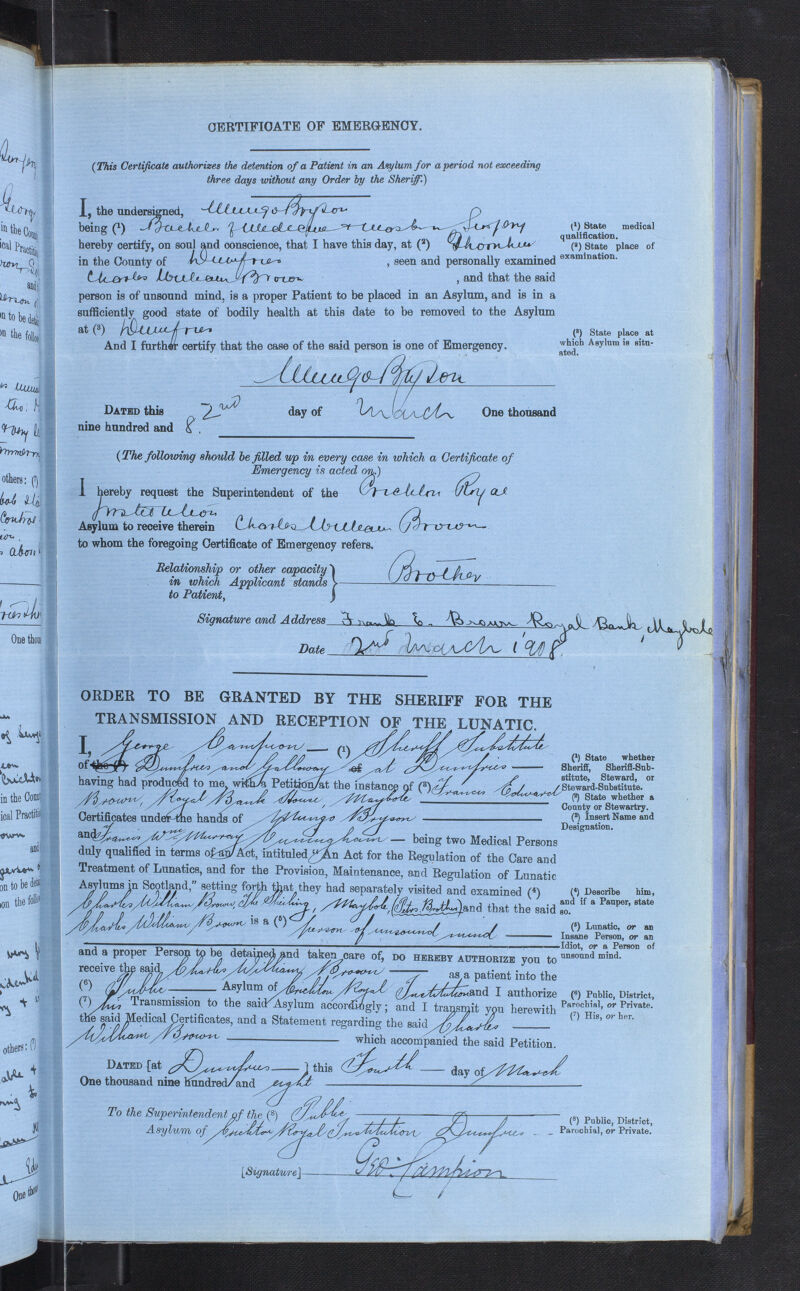 CERTIFICATE OF EMERGENCY.
(This Certificate authorizes the detention of a Patient in an Asylum for a period not exceeding
three days without any Order by the Sheriff.)
I, the undersigned, Mungo Bryson
being (1) Bachelor of Medecine & Master in Surgery
hereby certify, on soul and conscience, that I have this day, at (2) Thornhill
in the County of Dumfries, seen and personally examined
Charles William Brown, and that the said
person is of unsound mind, is a proper Patient to be placed in an Asylum, and is in a
sufficiently good state of bodily health at this date to be removed to the Asylum
at (3) Dumfries
And I further certify that the case of the said person is one of Emergency.
(1) State medical
qualification.
(2) State place of
examination.
(3) State place at
which Asylum is situ-
ated.
Mungo Bryson
DATED this 2nd day of March One thousand
nine hundred and 8.
(The following should be filled up in every case in which a Certificate of
Emergency is acted on.)
I hereby request the Superintendent of the Crichton Royal
Institution
Asylum to receive therein Charles William Brown
to whom the foregoing Certificate of Emergency refers.
Relationship or other capacity
in which Applicant stands
to Patient,
} Brother
Signature and Address Frank E. Brown Royal Bank, Maybole
Date 2nd March 1908.
ORDER TO BE GRANTED BY THE SHERIFF FOR THE
TRANSMISSION AND RECEPTION OF THE LUNATIC.
I, George Campion — (1) Sheriff Substitute
of the (2) Dumfries and Galloway of at Dumfries —
having had produced to me, with a Petition at the instance of (3) Francis Edward
Brown, Royal Bank House, Maybole
Certificates under the hands of Mungo Bryson
and Francis Wm Murray Cuningham — being two Medical Persons
duly qualified in terms of an Act, intituled "An Act for the Regulation of the Care and
Treatment of Lunatics, and for the Provision, Maintenance, and Regulation of Lunatic
Asylums in Scotland," setting forth that they had separately visited and examined (4)
Charles William Brown, The Shieling, Maybole, (Petrs. Brother) and that the said
Charles William Brown is a (5) person of unsound mind —
and a proper Person to be detained and taken care of, DO HEREBY AUTHORIZE you to
receive the said Charles William Brown — as a patient into the
(6) Public — Asylum of Crichton Royal Institution and I authorize
(7) his Transmission to the said Asylum accordingly; and I transmit you herewith
the said Medical Certificates, and a Statement regarding the said Charles —
William Brown — which accompanied the said Petition.
(1) State whether
Sheriff, Sheriff-Sub-
stitute, Steward, or
Steward-Substitute.
(2) State whether a
County or Stewartry.
(3) Insert Name and
Designation.
(4) Describe him,
and if a Pauper, state
so.
(5) Lunatic, or an
Insane Person, or an
Idiot, or a Person of
unsound mind.
(6) Public, District,
Parochial, or Private.
(7) His, or her.
DATED [at Dumfries — ] this Fourth — day of March
One thousand nine hundred and eight
To the Superintendent of the (8) Public
Asylum of Crichton Royal Institution Dumfries
(8) Public, District,
Parochial, or Private.
[Signature] Geo: Campion